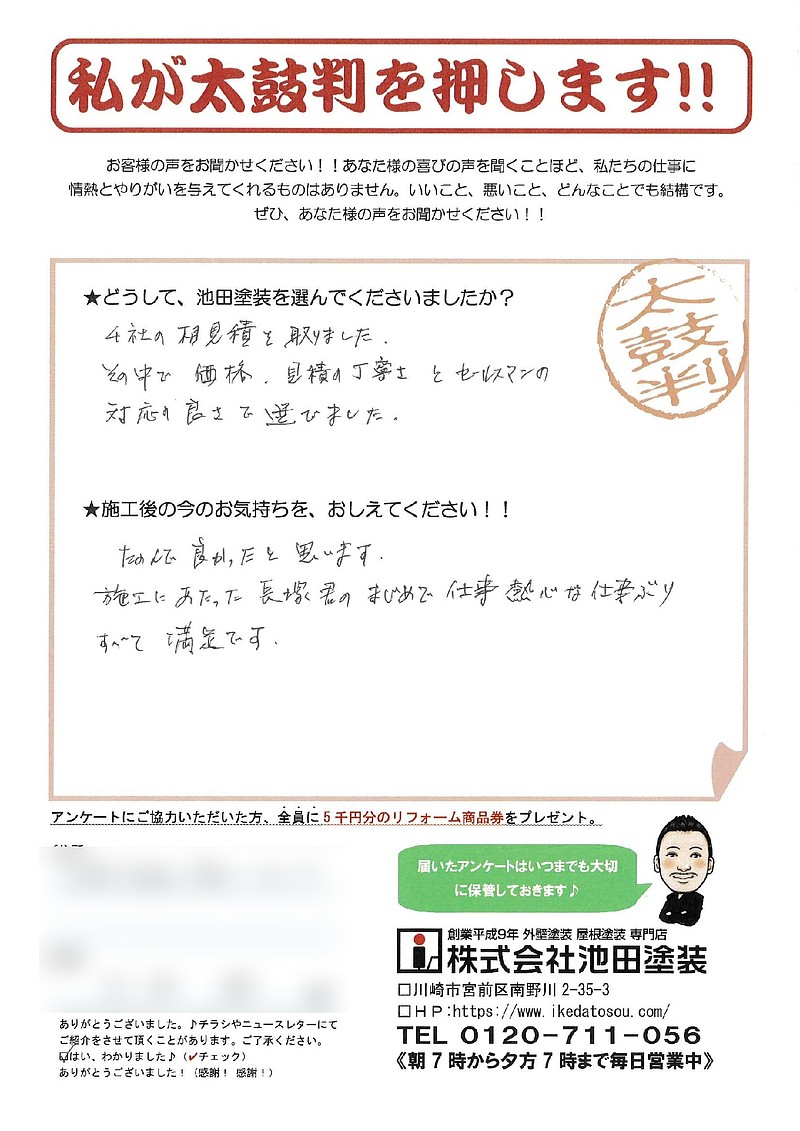 私が太鼓判を押します!!
お客様の声をお聞かせください！！あなた様の喜びの声を聞くことほど、私たちの仕事に
情熱とやりがいを与えてくれるものはありません。いいこと、悪いこと、どんなことでも結構です。
ぜひ、あなた様の声をお聞かせください！！
太鼓判
★どうして、池田塗装を選んでくださいましたか？
4社の相見積を取りました.
その中で 価格. 見積の丁寧さ と セールスマンの
対応の良さで選びました.
★施工後の今のお気持ちを、おしえてください！！
たのんで良かったと思います.
施工にあたった長塚君のまじめで仕事熱心な仕事ぶり
すべて満足です.
アンケートにご協力いただいた方、全員に5千円分のリフォーム商品券をプレゼント。
届いたアンケートはいつまでも大切
に保管しておきます♪
創業平成9年 外壁塗装 屋根塗装 専門店
株式会社池田塗装
□川崎市宮前区南野川2-35-3
□HP:https://www.ikedatosou.com/
TEL 0120-711-056
《朝7時から夕方7時まで毎日営業中》
ありがとうございました。♪チラシやニュースレターにて
ご紹介をさせて頂くことがあります。ご了承ください。
☑はい、わかりました♪（✓チェック）
ありがとうございました！（感謝！感謝！）